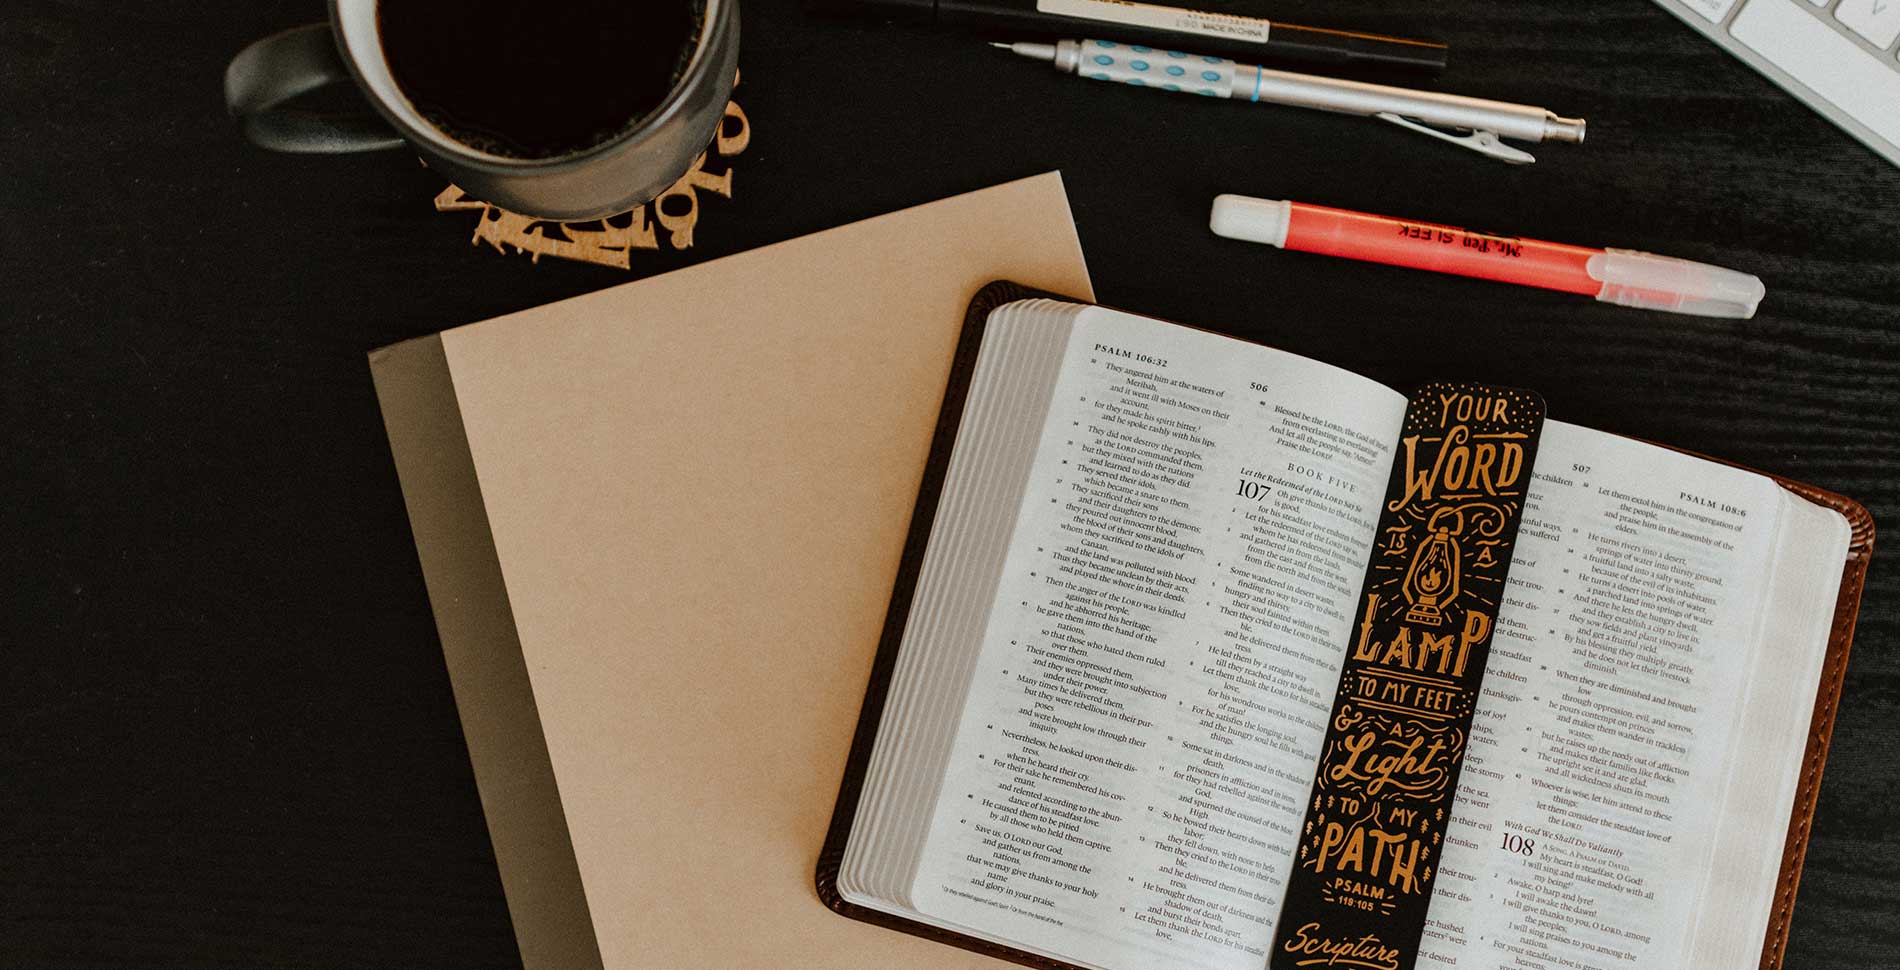 MADE IN CHINA
Mr. Pen SLEEK
PSALM 106:32
506
32 They angered him at the waters of
Meribah,
and it went ill with Moses on their
account,
33 for they made his spirit bitter,
and he spoke rashly with his lips.
34 They did not destroy the peoples,
as the LORD commanded them,
35 but they mixed with the nations
and learned to do as they did.
36 They served their idols,
which became a snare to them.
37 They sacrificed their sons
and their daughters to the demons;
38 they poured out innocent blood,
the blood of their sons and daughters,
whom they sacrificed to the idols of
Canaan,
and the land was polluted with blood.
39 Thus they became unclean by their acts,
and played the whore in their deeds.
40 Then the anger of the LORD was kindled
against his people,
and he abhorred his heritage;
41 he gave them into the hand of the
nations,
so that those who hated them ruled
over them.
42 Their enemies oppressed them,
and they were brought into subjection
under their power.
43 Many times he delivered them,
but they were rebellious in their pur-
poses
and were brought low through their
iniquity.
44 Nevertheless, he looked upon their dis-
tress,
when he heard their cry.
45 For their sake he remembered his cov-
enant,
and relented according to the abun-
dance of his steadfast love.
46 He caused them to be pitied
by all those who held them captive.
47 Save us, O LORD our God,
and gather us from among the
nations,
that we may give thanks to your holy
name
and glory in your praise.
48 Blessed be the LORD, the God of Israel,
from everlasting to everlasting!
And let all the people say, "Amen!"
Praise the LORD!
BOOK FIVE
Let the Redeemed of the LORD Say So
107 Oh give thanks to the LORD, for he
is good,
for his steadfast love endures forever!
2 Let the redeemed of the LORD say so,
whom he has redeemed from trouble
3 and gathered in from the lands,
from the east and from the west,
from the north and from the south.
4 Some wandered in desert wastes,
finding no way to a city to dwell in;
5 hungry and thirsty,
their soul fainted within them.
6 Then they cried to the LORD in their trou-
ble,
and he delivered them from their dis-
7 He led them by a straight way
till they reached a city to dwell in.
8 Let them thank the LORD for his steadfast
love,
for his wondrous works to the children
of man!
9 For he satisfies the longing soul,
and the hungry soul he fills with good
things.
10 Some sat in darkness and in the shadow of
death,
prisoners in affliction and in irons,
11 for they had rebelled against the words of
God,
and spurned the counsel of the Most
High.
12 So he bowed their hearts down with hard
labor;
they fell down, with none to help.
13 Then they cried to the LORD in their trou-
ble,
and he delivered them from their dis-
tress.
14 He brought them out of darkness and the
shadow of death,
and burst their bonds apart.
15 Let them thank the LORD for his steadfast
love,
YOUR
WORD
IS A
LAMP
TO MY FEET
& A
Light
TO MY
PATH
PSALM
119:105
Scripture
507
PSALM 108:6
32 Let them extol him in the congregation of
the people,
and praise him in the assembly of the
elders.
33 He turns rivers into a desert,
springs of water into thirsty ground,
34 a fruitful land into a salty waste,
because of the evil of its inhabitants.
35 He turns a desert into pools of water,
a parched land into springs of water.
36 And there he lets the hungry dwell,
and they establish a city to live in;
37 they sow fields and plant vineyards
and get a fruitful yield.
38 By his blessing they multiply greatly,
and he does not let their livestock
diminish.
39 When they are diminished and brought
low
through oppression, evil, and sorrow,
40 he pours contempt on princes
and makes them wander in trackless
wastes;
41 but he raises up the needy out of affliction
and makes their families like flocks.
42 The upright see it and are glad,
and all wickedness shuts its mouth.
43 Whoever is wise, let him attend to these
things;
let them consider the steadfast love of
the LORD.
With God We Shall Do Valiantly
108 A SONG. A PSALM OF DAVID.
My heart is steadfast, O God!
I will sing and make melody with all
my being!
2 Awake, O harp and lyre!
I will awake the dawn!
3 I will give thanks to you, O LORD, among
the peoples;
I will sing praises to you among the
nations.
4 For your steadfast love is great above the
heavens;